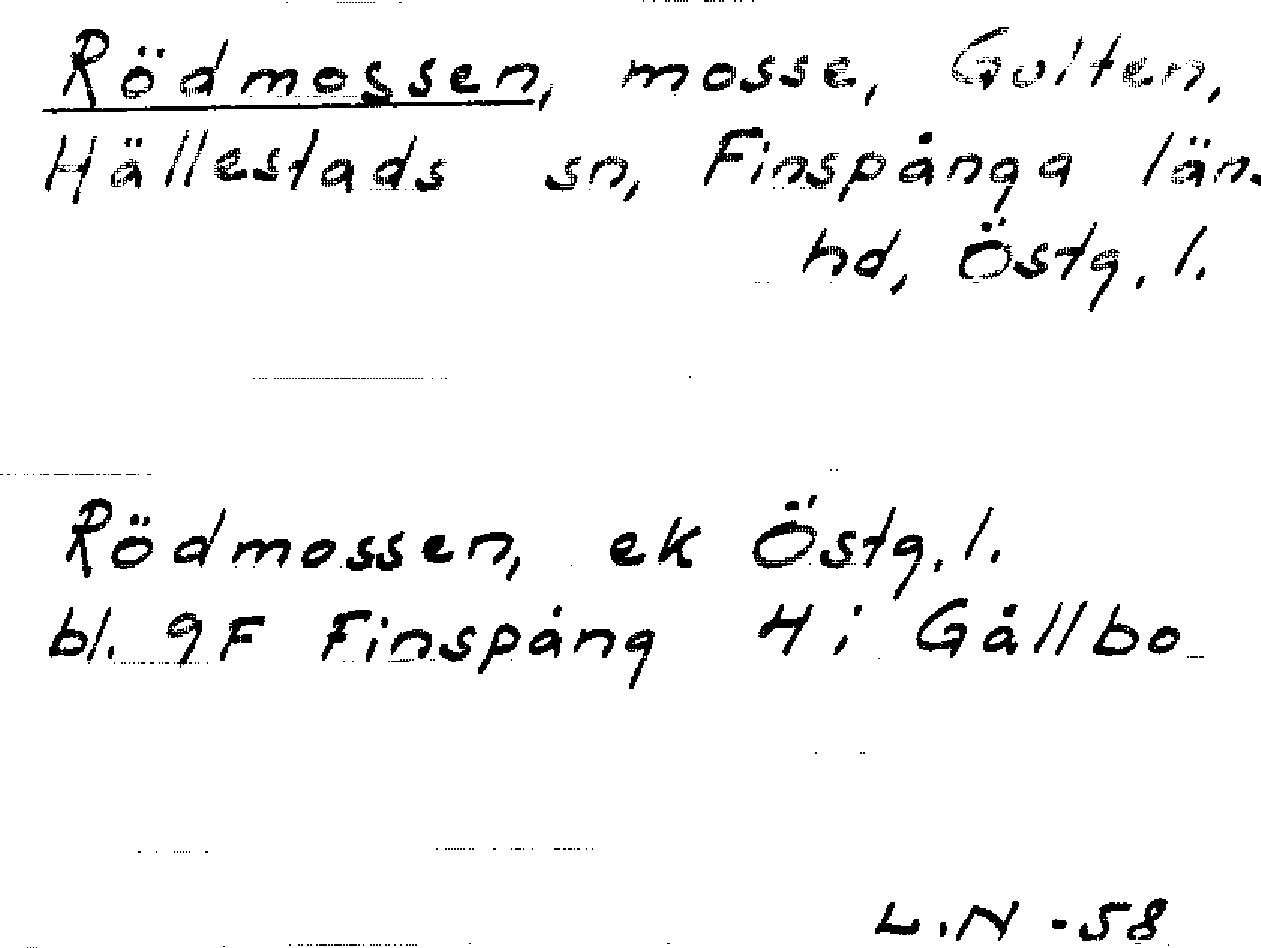 Rödmossen, mosse, Gulten,
Hällestads sn, Finspånga län.
hd, Östg. l.
Rödmossen, ek Östg. l.
bl. 9F Finspång 4 i Gållbo
L.N -58